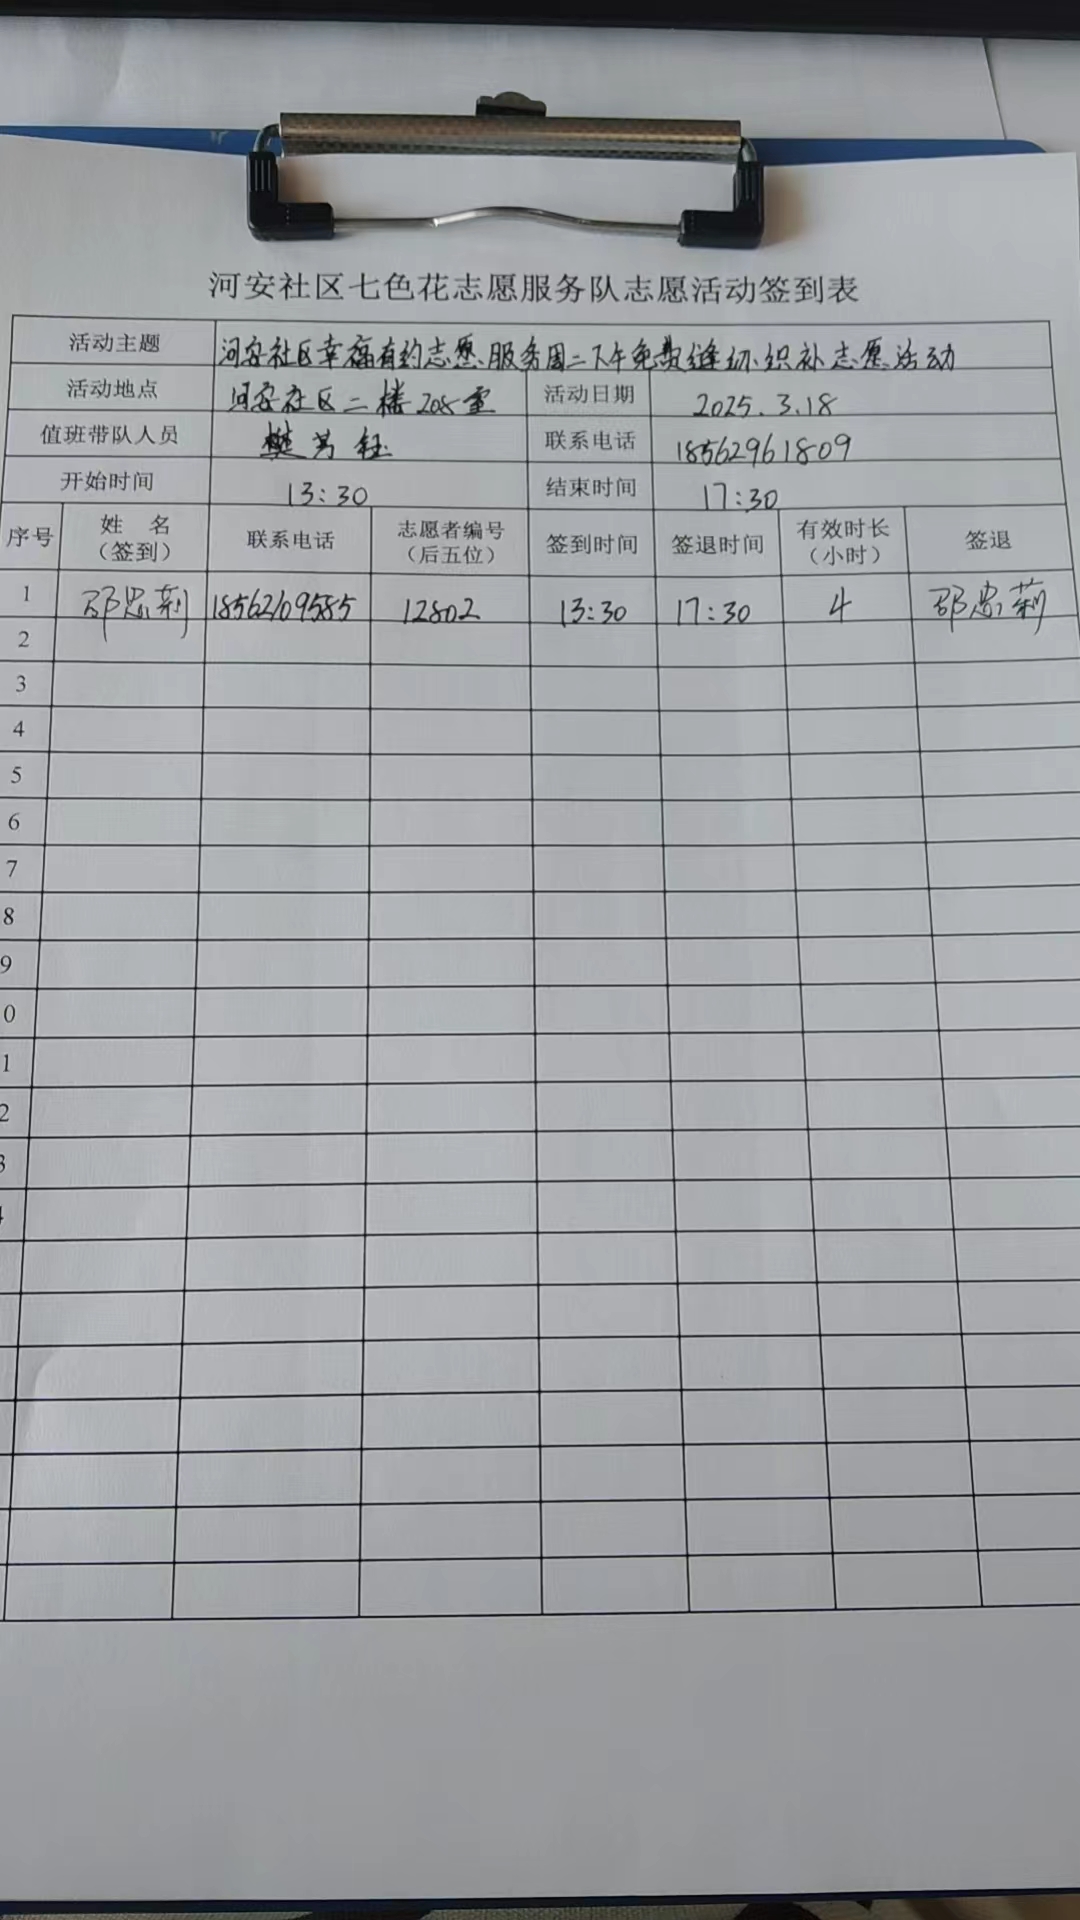 河安社区七色花志愿服务队志愿活动签到表
活动主题 河安社区幸福有约志愿服务周二下午免费缝纫织补志愿活动
活动地点 河安社区二楼208室 活动日期 2025.3.18
值班带队人员 樊芳钰 联系电话 18562961809
开始时间 13:30 结束时间 17:30
序号 姓 名 联系电话 志愿者编号 签到时间 签退时间 有效时长 签退
(签到) (后五位) (小时)
1 邵忠莉 18562109585 12802 13:30 17:30 4 邵忠莉
2
3
4
5
6
7
8
9
0
1
2
3
4